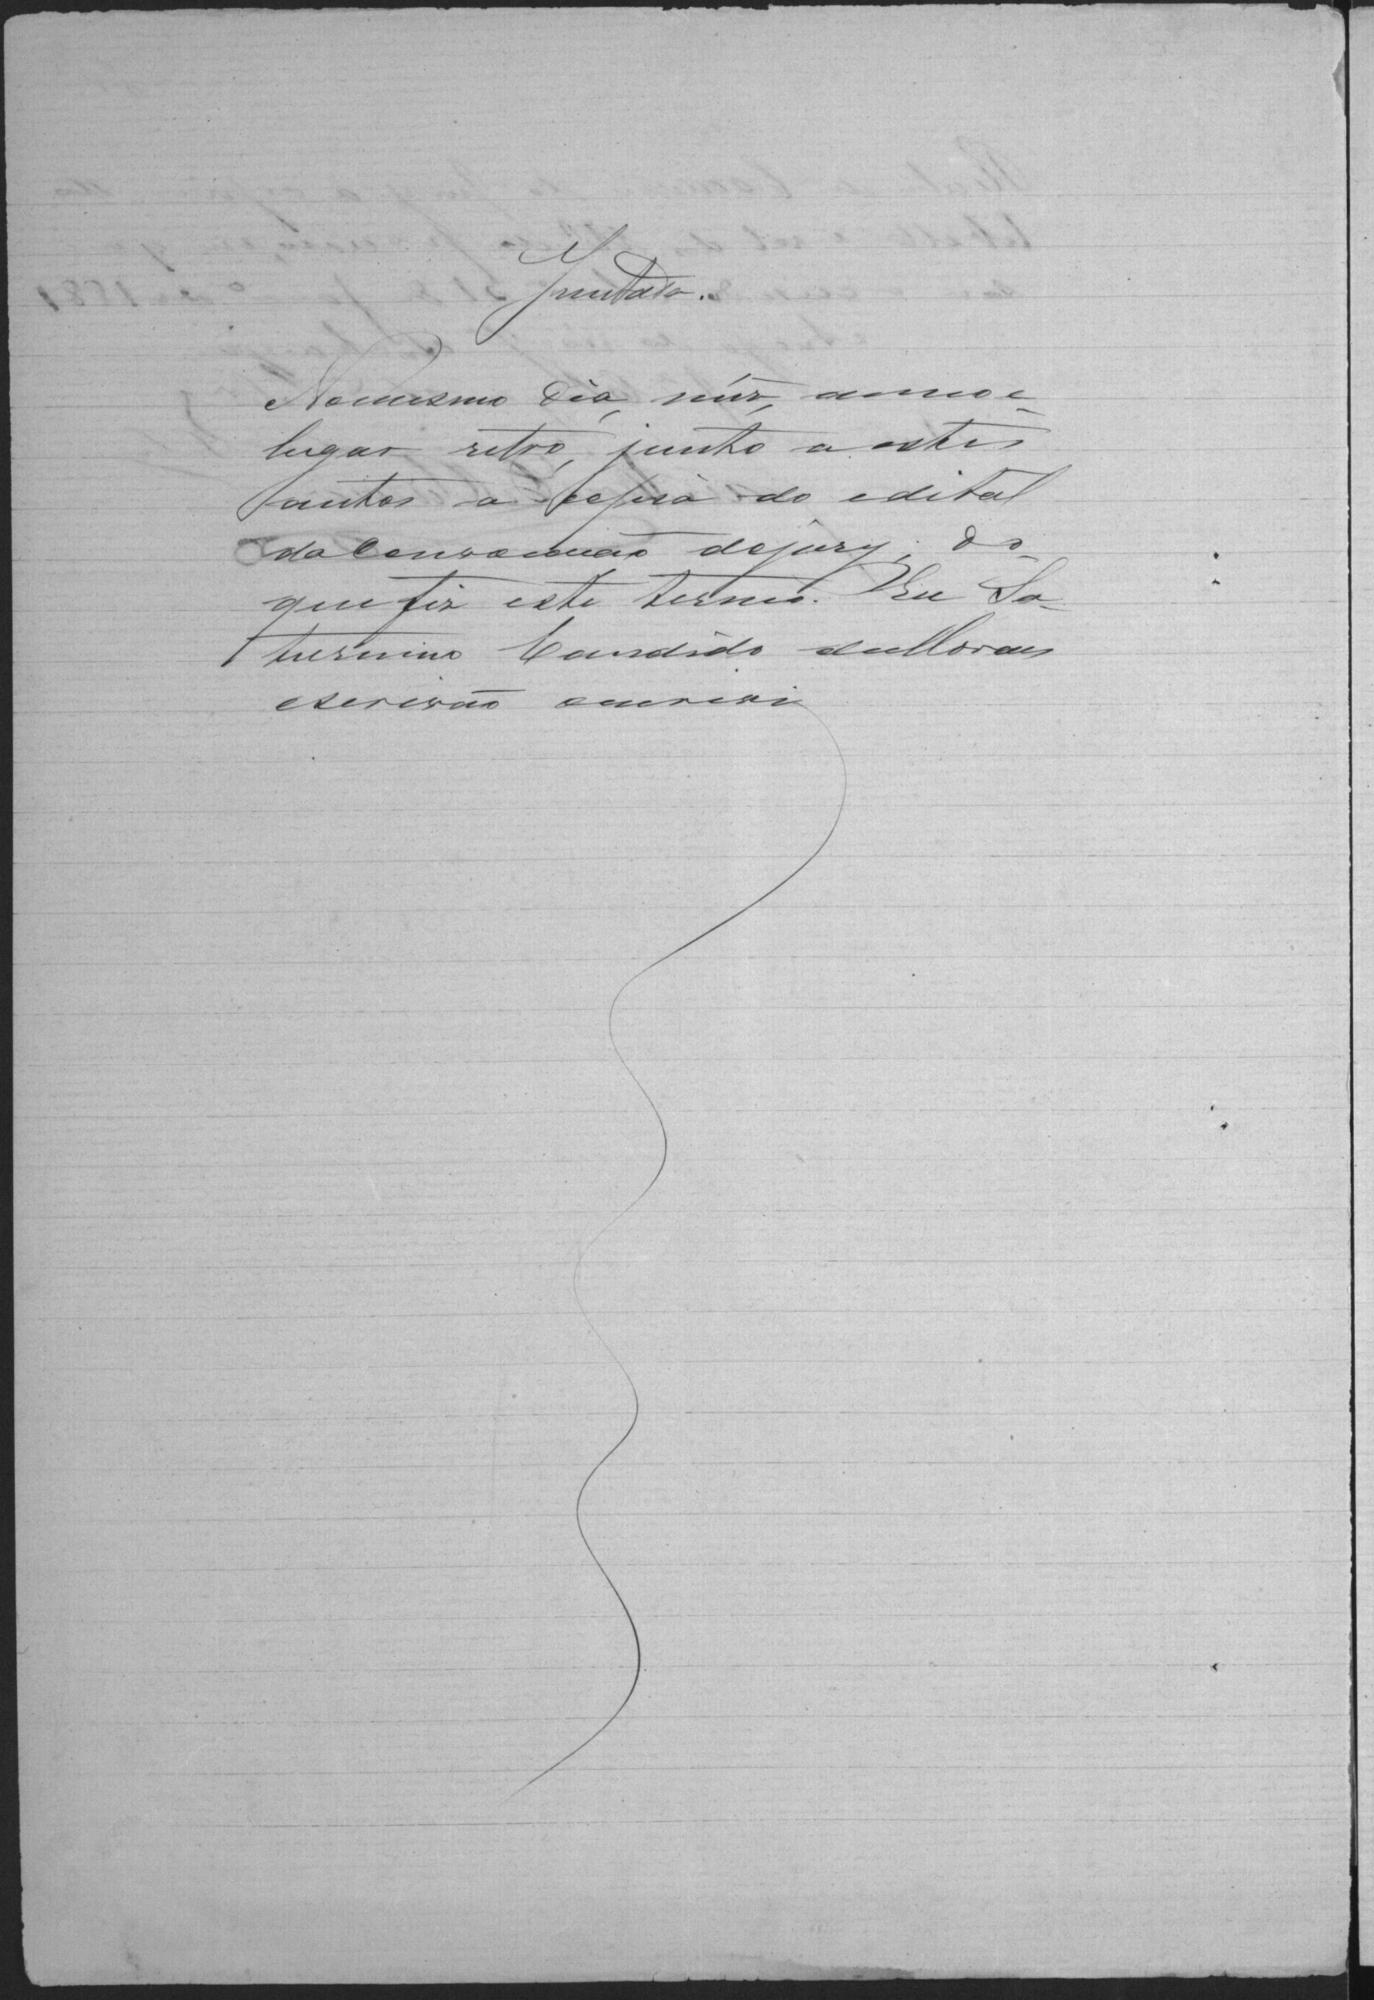 Juntada.
No mesmo dia, mez, anno e
lugar retro, junto a estes
autos a copia do edital
da Convocação do jury; do
que fiz este termo. Eu Sa-
turnino Candido de Moraes
escrivão escrivi